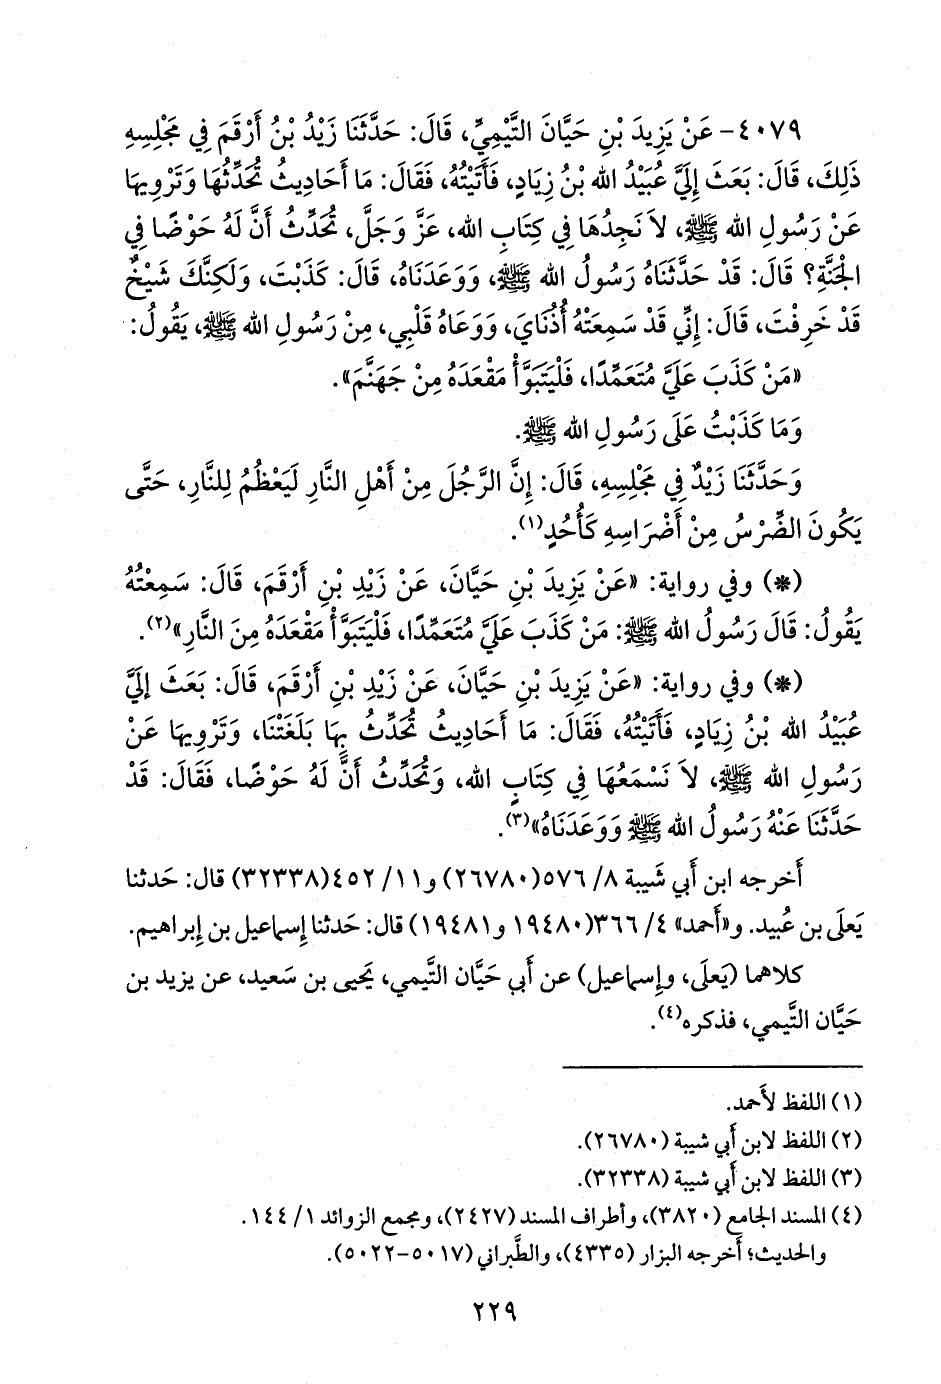 ٤٠٧٩- عَنْ يَزِيدَ بْنِ حَيَّانَ التَّيْمِيِّ، قَالَ: حَدَّثَنَا زَيْدُ بْنُ أَرْقَمَ فِي مَجْلِسِهِ
ذَلِكَ، قَالَ: بَعَثَ إِلَيَّ عُبَيْدُ الله بْنُ زِيَادٍ، فَأَتَيْتُهُ، فَقَالَ: مَا أَحَادِيثُ تُحَدِّثُهَا وَتَرْوِيهَا
عَنْ رَسُولِ الله ﷺ، لاَ نَجِدُهَا فِي كِتَابِ الله، عَزَّ وَجَلَّ، تُحَدِّثُ أَنَّ لَهُ حَوْضًا فِي
الْجَنَّةِ؟ قَالَ: قَدْ حَدَّثَنَاهُ رَسُولُ الله ﷺ، وَوَعَدَنَاهُ، قَالَ: كَذَبْتَ، وَلَكِنَّكَ شَيْخٌ
قَدْ خَرِفْتَ، قَالَ: إِنِّي قَدْ سَمِعَتْهُ أُذُنَايَ، وَوَعَاهُ قَلْبِي، مِنْ رَسُولِ الله ﷺ، يَقُولُ:
«مَنْ كَذَبَ عَلَيَّ مُتَعَمِّدًا، فَلْيَتَبَوَّأْ مَقْعَدَهُ مِنْ جَهَنَّمَ».
وَمَا كَذَبْتُ عَلَى رَسُولِ الله ﷺ.
وَحَدَّثَنَا زَيْدٌ فِي مَجْلِسِهِ، قَالَ: إِنَّ الرَّجُلَ مِنْ أَهْلِ النَّارِ لَيَعْظُمُ لِلنَّارِ، حَتَّى
يَكُونَ الضِّرْسُ مِنْ أَضْرَاسِهِ كَأُحُدٍ(١).
(*) وفي رواية: «عَنْ يَزِيدَ بْنِ حَيَّانَ، عَنْ زَيْدِ بْنِ أَرْقَمَ، قَالَ: سَمِعْتُهُ
يَقُولُ: قَالَ رَسُولُ الله ﷺ: مَنْ كَذَبَ عَلَيَّ مُتَعَمِّدًا، فَلْيَتَبَوَّأْ مَقْعَدَهُ مِنَ النَّارِ»(٢).
(*) وفي رواية: «عَنْ يَزِيدَ بْنِ حَيَّانَ، عَنْ زَيْدِ بْنِ أَرْقَمَ، قَالَ: بَعَثَ إِلَيَّ
عُبَيْدُ الله بْنُ زِيَادٍ، فَأَتَيْتُهُ، فَقَالَ: مَا أَحَادِيثُ تُحَدِّثُ بِهَا بَلَغَتْنَا، وَتَرْوِيهَا عَنْ
رَسُولِ الله ﷺ، لاَ نَسْمَعُهَا فِي كِتَابِ الله، وَتُحَدِّثُ أَنَّ لَهُ حَوْضًا، فَقَالَ: قَدْ
حَدَّثَنَا عَنْهُ رَسُولُ الله ﷺ وَوَعَدَنَاهُ»(٣).
أَخرجه ابن أَبي شَيبة ٨/ ٥٧٦(٢٦٧٨٠) و١١/ ٤٥٢(٣٢٣٣٨) قال: حَدثنا
يَعلَى بن عُبيد. و«أَحمد» ٤/ ٣٦٦(١٩٤٨٠ و١٩٤٨١) قال: حَدثنا إِسماعيل بن إِبراهيم.
كلاهما (يَعلَى، وإِسماعيل) عن أَبي حَيَّان التَّيمي، يَحيى بن سَعيد، عن يزيد بن
حَيَّان التَّيمي، فذكره(٤).
(١) اللفظ لأَحمد.
(٢) اللفظ لابن أَبي شيبة (٢٦٧٨٠).
(٣) اللفظ لابن أَبي شيبة (٣٢٣٣٨).
(٤) المسند الجامع (٣٨٢٠)، وأطراف المسند (٢٤٢٧)، ومجمع الزوائد ١/ ١٤٤.
والحديث؛ أَخرجه البزار (٤٣٣٥)، والطَّبراني (٥٠١٧-٥٠٢٢).
٢٢٩